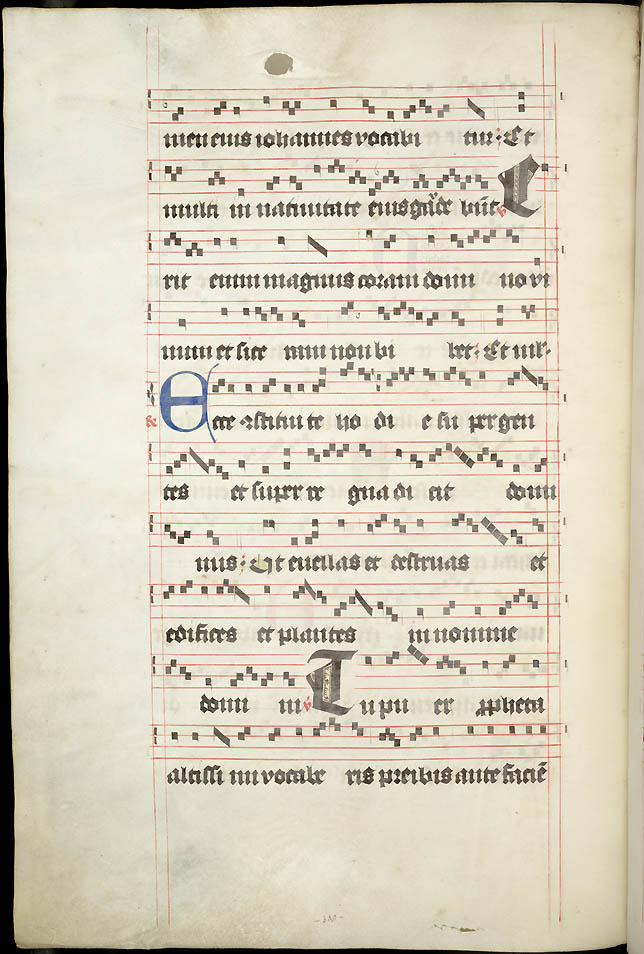 men eius iohannes vocabi tur: Et
multi in nativitate eius gaude bunt ℣ E
rit enim magnus coram domi no vi
num et sice ram non bi bet: Et mul-
℟ Ecce constitui te ho di e su per gen
tes et super re gna di cit domi
nus: Ut evellas et destruas et
edifices et plantes in nomine
domi ni ℣ Tu pu er propheta
altissi mi vocabe ris preibis ante faciē